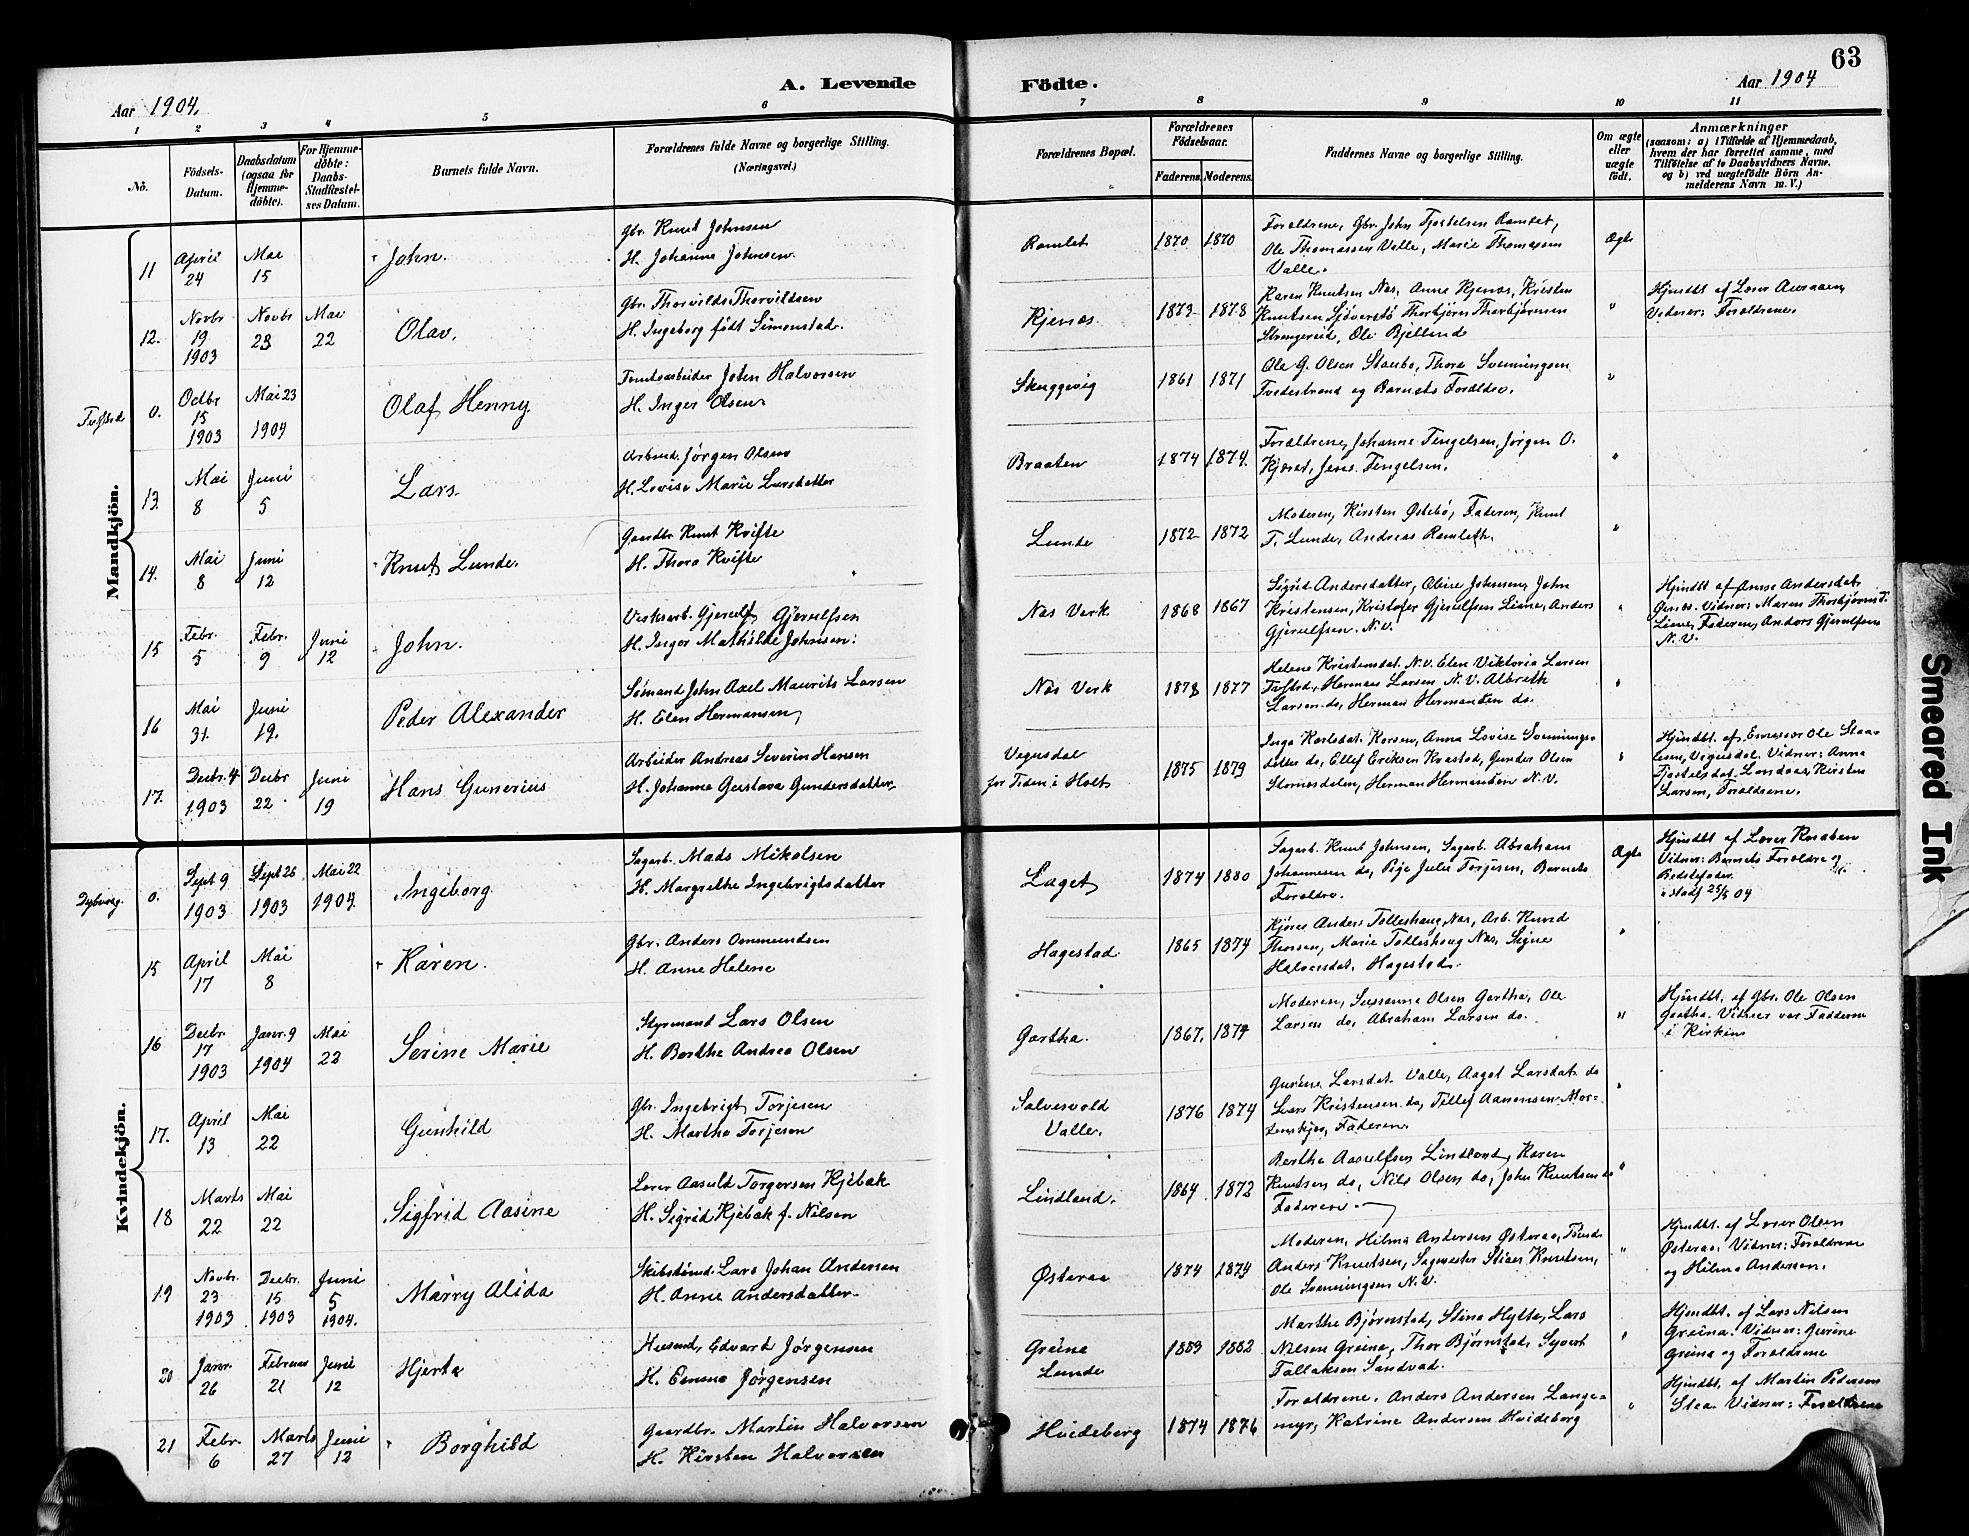 63
A. Levende Födte.
Aar 1904.
Aar 1904
1 2 3 4 5 6 7 8 9 10 11
No.
Födsels-Datum.
Daabsdatum (ogsaa for Hjemme-döbte).
For Hjemme-döbte: Daabs-Stadfæstel-ses Datum.
Barnets fulde Navn.
Forældrenes fulde Navne og borgerlige Stilling.
(Næringsvei.)
Forældrenes Bopæl.
Forældrenes Födselsaar.
Faderens. Moderens.
Faddernes Navne og borgerlige Stilling.
Om ægte eller uægte født.
Anmærkninger
(saasom: a) i Tilfælde af Hjemmedaab,
hvem der har forrettet samme, med
Tilföielse af to Daabsvidners Navne.
og b) ved uægtefödte Börn An-
melderens Navn m. V.)
Mandkjön.
11 April 24 Mai 15 John.
Gbr. Knut Johnsen
H. Johanna Johnsen.
Ramlet 1870 1870
Forældrene, Gbr. John Tjostelsen Ramlet,
Ole Thomassen Valle, Marie Thomassen
Valle.
Ægte
12. Novbr 19 1903 Novbr 23 Mai 22 Olav.
Gbr. Thorvilds Thorvildsen
H. Ingeborg født Simonstad.
Kjenæs 1873 1878
Karen Knutsen Næs, Anne Kjenæs, Kristen
Knutsen Sjöverstö Thorbjörn Thorbjörnsen
Strengereid, Ole Bjelland
Hjmdbt af Lærer Aanesen
Vidner: Forældrene.
0. Octbr 15 1903 Mai 23 1904 Olaf Henny.
Tomtearbeider John Halvorsen
H. Inger Olsen
Skuggevig 1861 1871
Ole G. Olsen Staubø, Thora Svenningsen
Tvedestrand og Barnets Forældre.
13. Mai 8 Juni 5 Lars.
Arbeid. Jørgen Olsen
H. Lovise Marie Larsdatter
Braaten 1874 1874.
Forældrene, Johanne Tengelsen, Jørgen O.
Kjørst, Jens Tengelsen.
14. Mai 8 Juni 12 Knut Lunde.
Gaardbr Knut Kvifte
H. Thora Kvifte
Lunde 1872 1872
Moderen, Kirsten Østebö, Faderen, Knut
T. Lunde, Andreas Ramleth.
15 Febr. 5 Febr. 9 Juni 12 John.
Verksarb. Gjerulf Gjerulfsen
H. Inger Mathilde Johnsen.
Næs Verk 1868 1867
Sigrid Andersdatter, Oline Johnsen, John
Kristensen, Kristofer Gjerulfsen Liene, Anders
Gjerulfsen. N.V.
Hjmdbt af Anne Andersdat
Vidner: Maren Thorbjörns
Liene, Faderen, Anders Gjerulfsen
N.V.
16 Mai 31. Juni 19. Peder Alexander
Sømand John Axel Maurits Larsen
H. Elen Hermansen,
Næs Verk 1878 1877
Helene Kristensdat. N.V. Elen Viktoria Larsen
Herman Larsen N.V. Albreth
Larsen do, Herman Hermansen do.
17. Decbr. 4 1903 Decbr 22 Juni 19 Hans Gunerius
Arbeider Andreas Severin Hansen
H. Johanne Gustava Gundersdatter,
Vegusdal
for Tiden i Holt
1875 1879
Inga Karlsdat. Korsen, Anna Lovise Svennings-
datter do, Ellef Eriksen Kvastad, Gunder Olsen
Stornesdalen, Herman Hermansen N.V.
Hjmdbt. af Ole Staa-
lesen, Vegusdal. Vidner: Anna
Tjostelsdat. Londaas, Kirsten
Larsen, Forældrene.
Kvindekjön.
Dybvaag. 0. Sept 9 1903 Sept 26 1903 Mai 22 1904. Ingeborg.
Sagarb. Mads Nikolsen
H. Margrethe Ingebrigtsdatter
Laget 1874 1880
Sagarb. Knut Johnsen, Sagarb. Abraham
Johannesen do, Pige Julie Torjusen, Barnets
Forældre.
Ægte
Hjmdbt af Lærer Knaben
Vidner: Barnets Forældre og
Bedstefader.
stadf 25/5 04
15 April 17 Mai 8 Karen.
Gbr. Anders Ommundsen
H. Anne Helene
Hagestad 1865 1874
Kjøres Anders Tolleshaug Næs, Arb. Knud
Thorsen, Marie Tolleshaug Næs, Signe
Halvorsdat. Hagestad.
16 Decbr. 17 1903 Janr. 9 1904 Mai 22 Serine Marie
Styrmand Lars Olsen
H. Berthe Andrea Olsen
Gartha. 1867. 1874
Moderen, Sussanne Olsen Gartha, Ole
Larsen do, Abraham Larsen do.
Hjmdbt. af Gbr. Ole Olsen
Gartha. Vidner var Fadderne
i Kirken
17. April 13 Mai 22 Gunhild
Gbr. Ingebrigt Torjesen
H. Martha Torjesen
Salvesvold
Valle.
1876 1874
Gurine Larsdat. Valle, Aagot Larsdat. do
Lars Kristensen do, Tellef Aanonsen Mor-
tenskjær, Faderen.
18 Marts 22 Mai 22 Sigfrid Aasine
Lærer Aasuld Torgersen Kjebæk
H. Sigrid Kjebæk f. Nilsen
Lindland. 1864 1872
Berthe Aasulfsen Lindland, Karen
Knutsen do, Nils Olsen do, John Knutsen do
Faderen.
19 Novbr. 23 1903 Decbr. 15 1903 Juni 5 1904. Marry Alida
Skibstømd. Lars Johan Andersen
H. Anne Andersdatter
Østeraa 1874 1874
Moderen, Hilma Andersen Østeraa,
Anders Knutsen, Sagmester Stian Knutsen,
Ole Svenningsen N.V.
Hjmdbt. af Lærer Olsen
Østeraa. Vidner: Forældrene
og Hilma Andersen.
20 Janr. 26 Februar 21 Juni 12 Hjerta
Husmd. Edvart Jørgensen
H. Emma Jørgensen
Greine
Lunde
1883 1882
Marthe Bjørnstad, Stina Hytta, Lars
Nilsen Greina, Thor Bjørnstad, Syvert
Tallaksen Sandvad.
Hjmdbt. af Lars Nilsen
Greina. Vidner: Gurine
Greina og Forældrene
21 Febr. 6 Marts 27 Juni 12 Borghild
Gaardbr. Martin Halvorsen
H. Kirsten Halvorsen
Hvideberg 1874 1876
Forældrene, Anders Andersen Lange-
myr, Katrine Andersen Hvideberg
Hjmdbt. af Martin Pedersen
Staa. Vidner: Forældrene
Smeared Ink